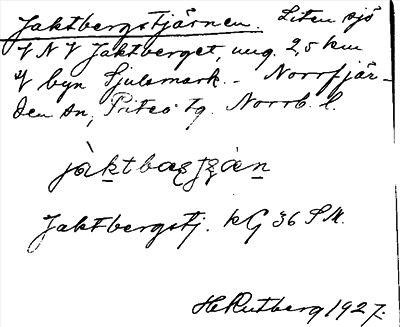 Jaktbergstjärnen. Liten sjö
V N V Jaktberget, ung. 2,5 km
V byn Sjulsmark. - Norrfjär-
den sn, Piteå tg. Norrb. l.
Jaktbergstj. kG 36 S M.
H Rutberg 1927.